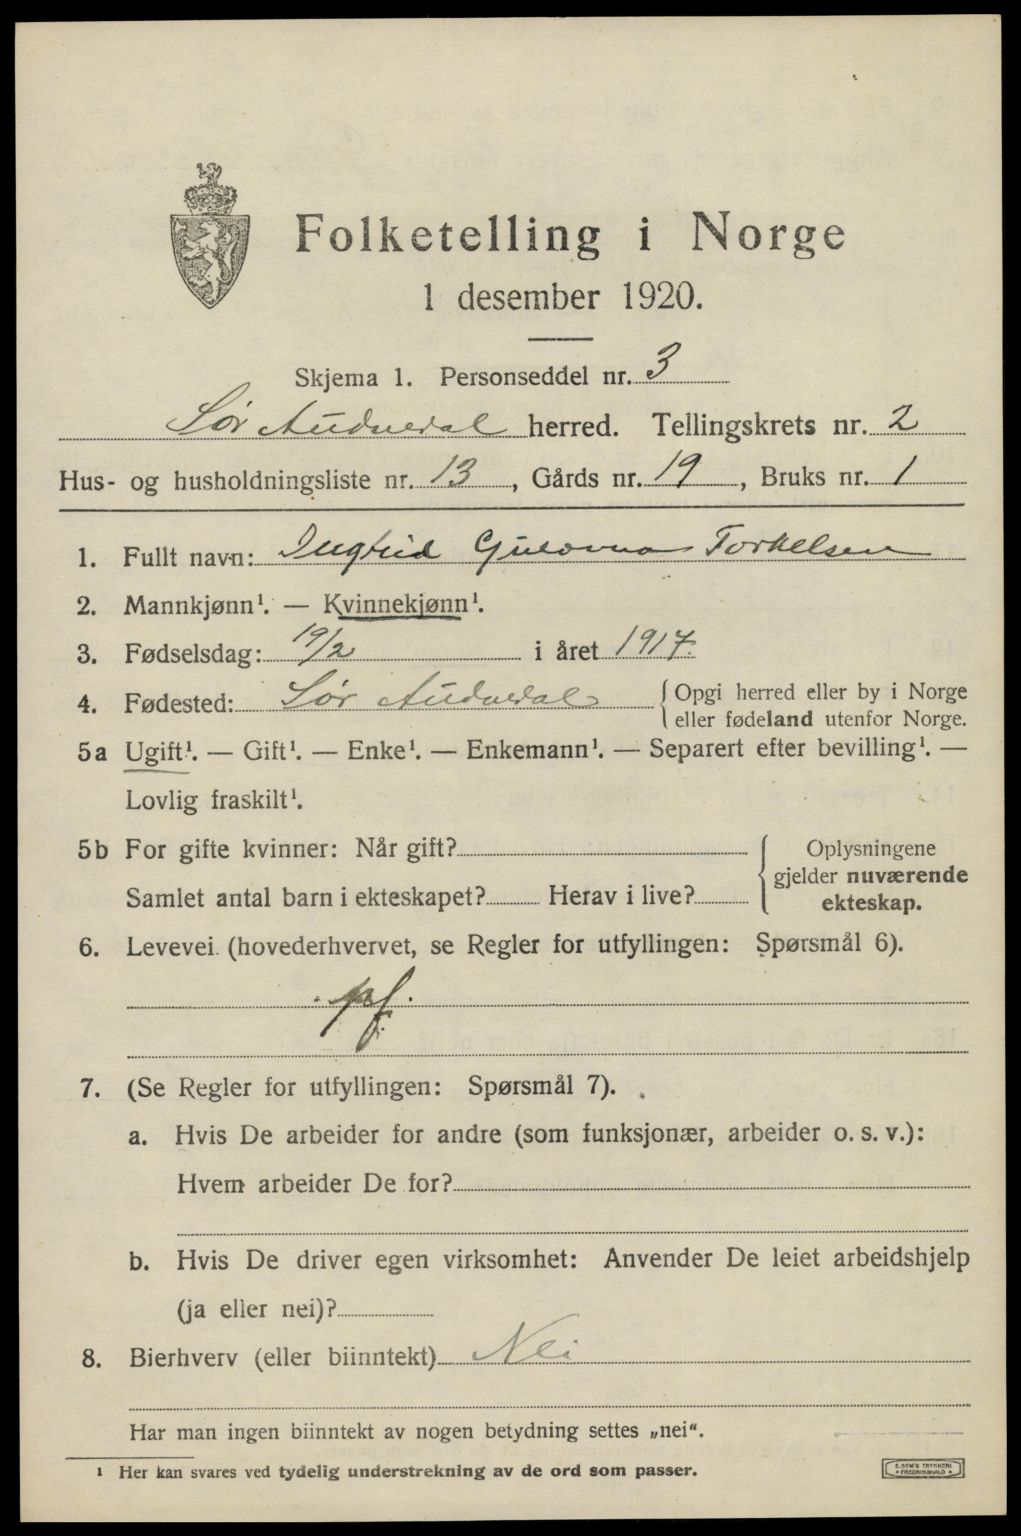 Folketelling i Norge
1 desember 1920.
Skjema 1. Personseddel nr. 3
Sør Audnedal herred. Tellingskrets nr. 2
Hus- og husholdningsliste nr. 13, Gårds nr. 19, Bruks nr. 1
1. Fullt navn: Ingrid Torkelsen
2. Mannkjønn¹. — Kvinnekjønn¹.
3. Fødselsdag: 19/2 i året 1917.
4. Fødested: Sør Audnedal { Opgi herred eller by i Norge
eller fødeland utenfor Norge.
5a Ugift¹. — Gift¹. — Enke¹. — Enkemann¹. — Separert efter bevilling¹. —
Lovlig fraskilt¹.
5b For gifte kvinner: Når gift?
Samlet antal barn i ekteskapet? Herav i live?
Oplysningene
gjelder nuværende
ekteskap.
6. Levevei (hovederhvervet, se Regler for utfyllingen: Spørsmål 6).
pf.
7. (Se Regler for utfyllingen: Spørsmål 7).
a. Hvis De arbeider for andre (som funksjonær, arbeider o. s. v.):
Hvem arbeider De for?
b. Hvis De driver egen virksomhet: Anvender De leiet arbeidshjelp
(ja eller nei)?
8. Bierhverv (eller biinntekt) Nei
Har man ingen biinntekt av nogen betydning settes „nei“.
¹ Her kan svares ved tydelig understrekning av de ord som passer.